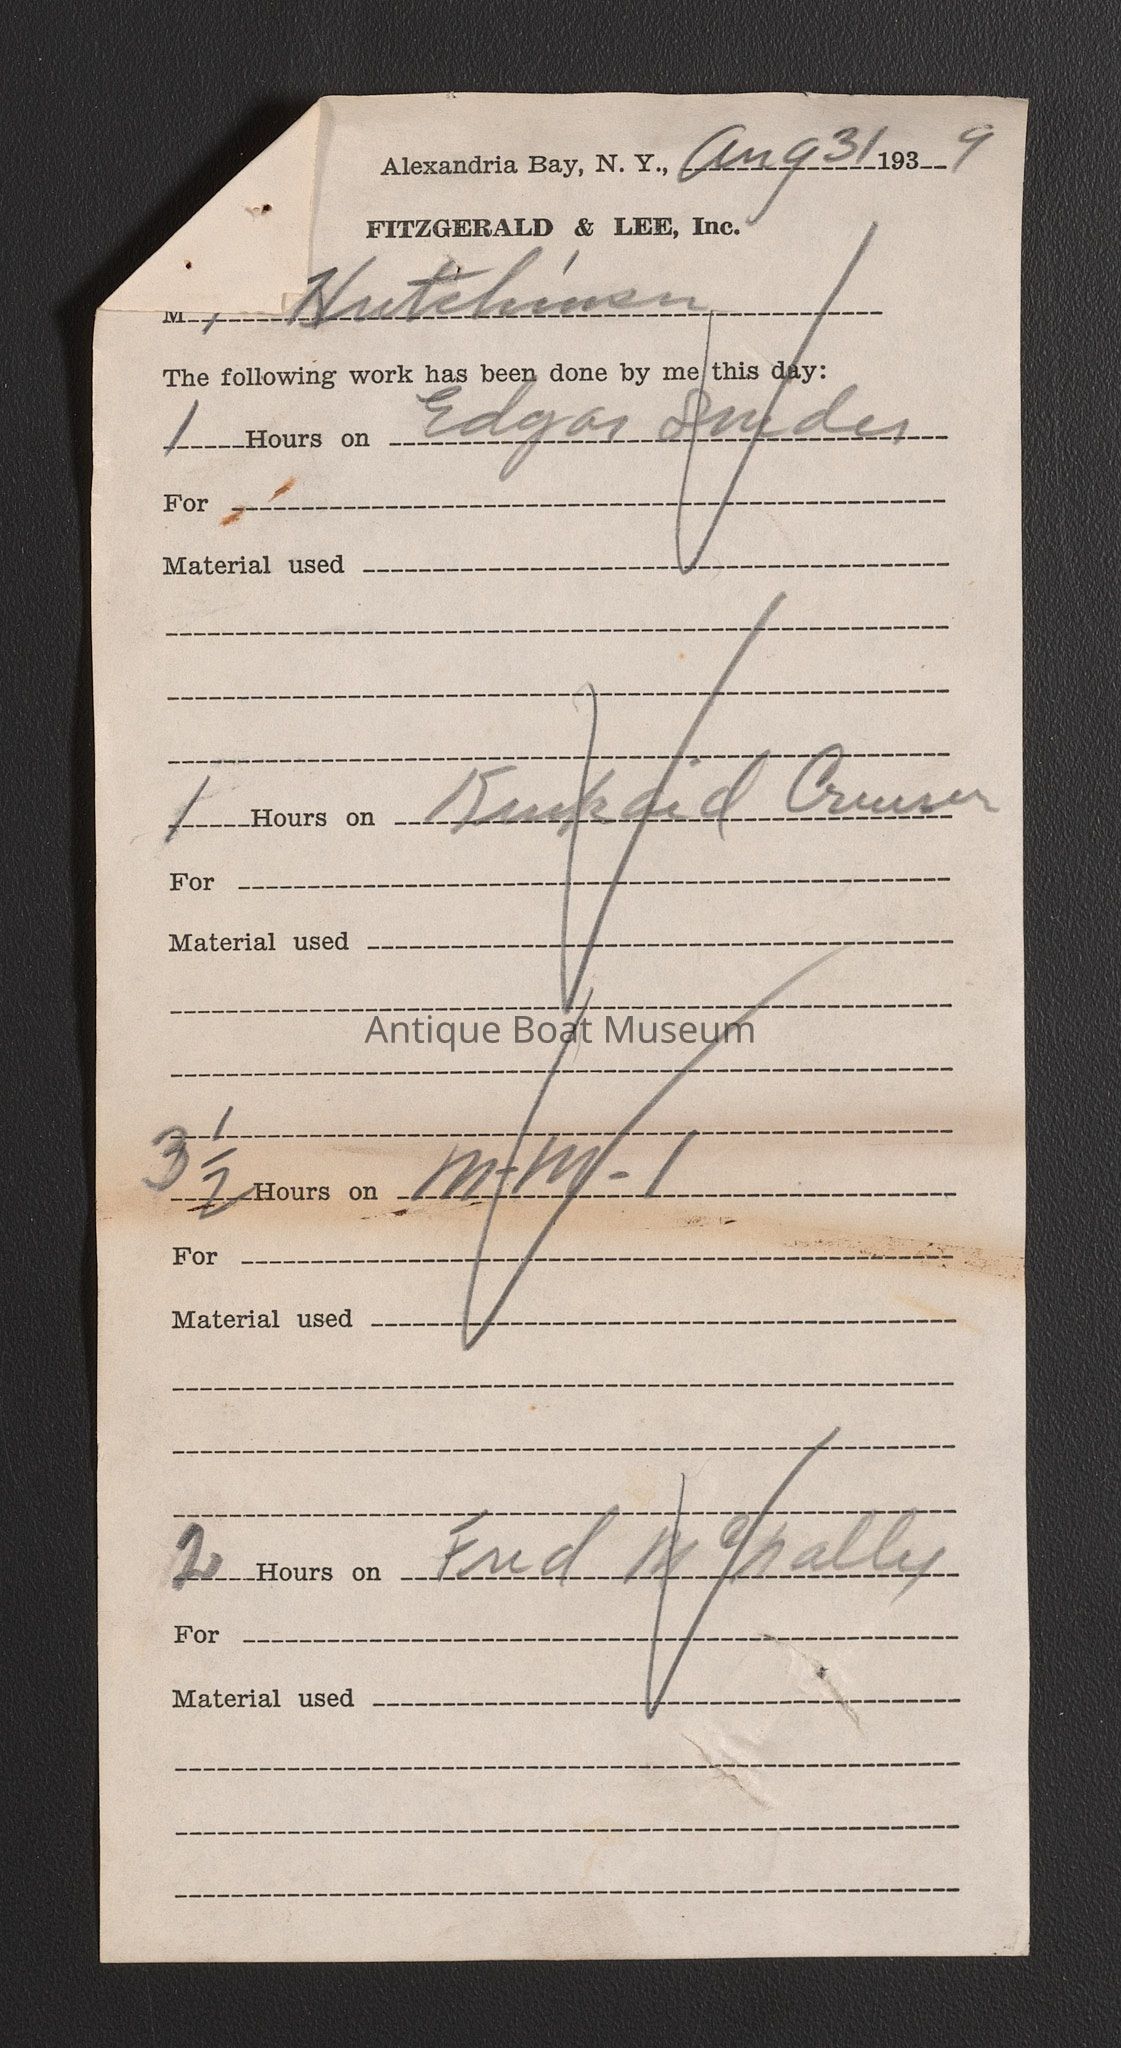 Alexandria Bay, N. Y., Aug 31 193 9
FITZGERALD & LEE, Inc.
M Hutchinson
The following work has been done by me this day:
1 Hours on Edgar Snider
For
Material used
1 Hours on Kinkaid Cruiser
For
Material used
Antique Boat Museum
3 1/2 Hours on M-M-1
For
Material used
2 Hours on Fred McNally
For
Material used